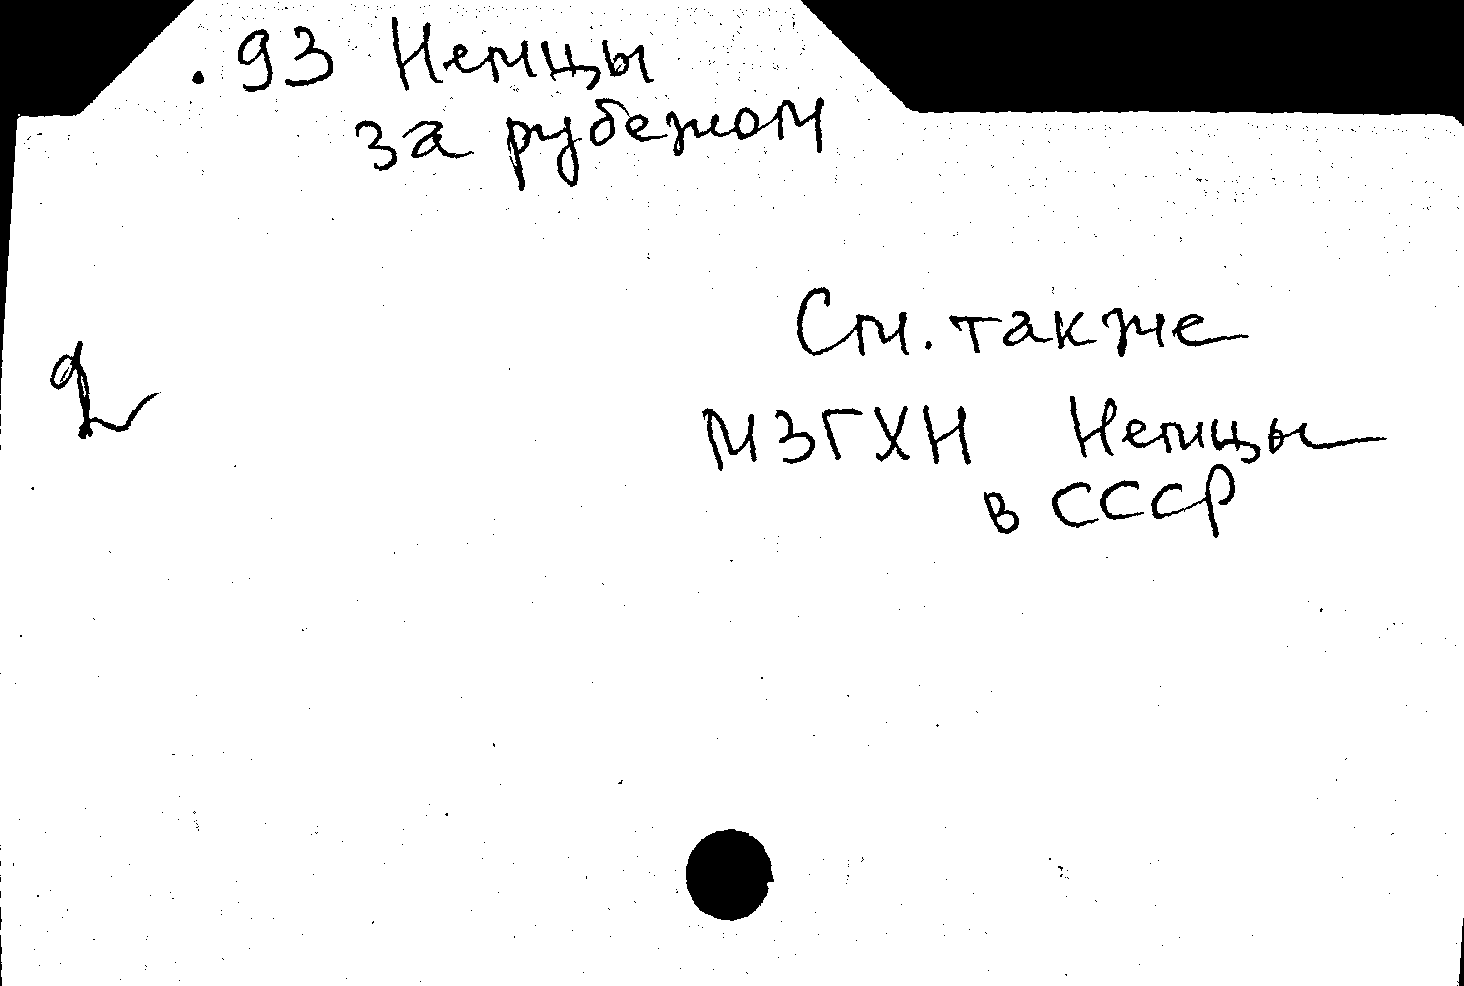 .93 Немцы
за рубежом
См. также
МЗГХН Немцы
в СССР